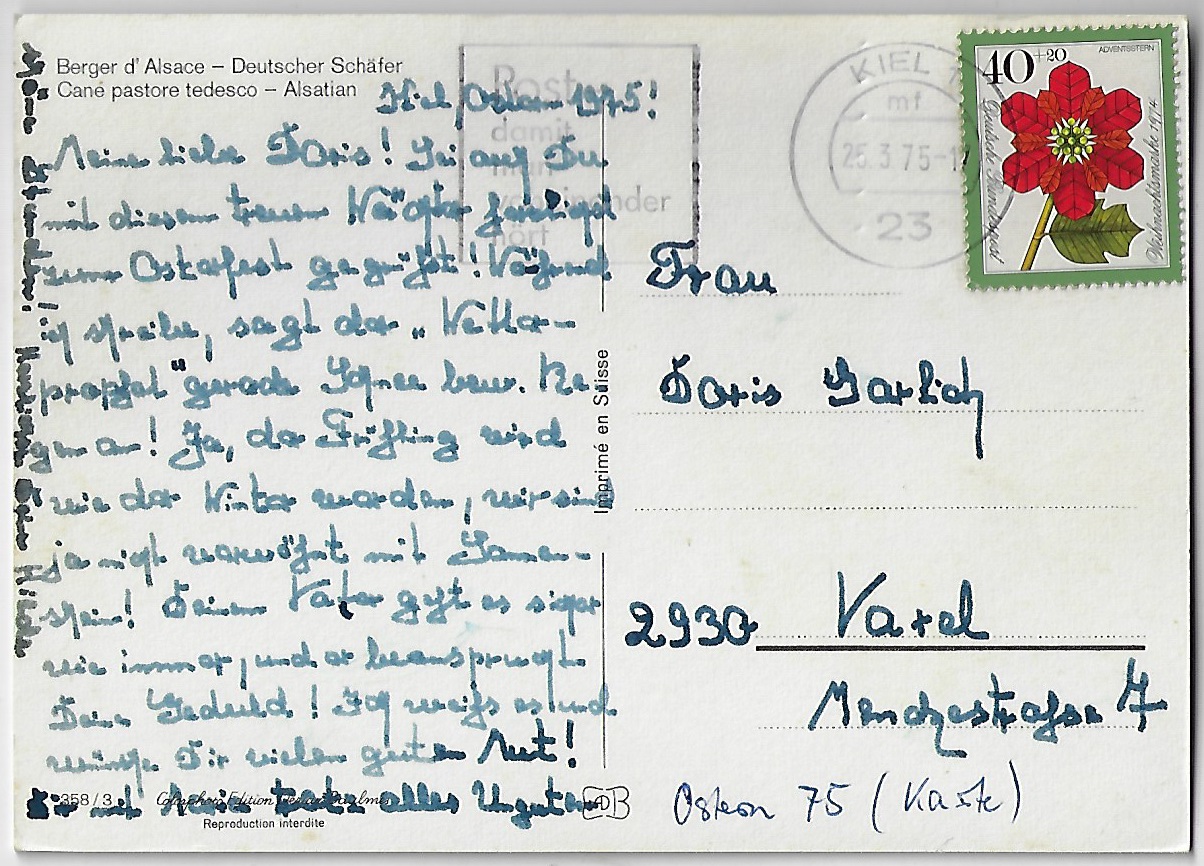 Berger d' Alsace – Deutscher Schäfer
Cane pastore tedesco – Alsatian
Kiel, Ostern 1975!
Meine liebe Doris! Sei auch Du
mit diesem treuen Wächter herzlichst
zum Osterfest gegrüßt! Während
ich schreibe, sagt der „Wetter-
prophet" gerade Schnee bezw. Re-
gen an! Ja, der Frühling wird
wie der Winter werden, wir sind
ja nicht verwöhnt mit Sonnen-
schein! Deinem Vater geht es sicher
wie immer, und er beansprucht
Deine Geduld! Ich weiß es und
wünsche Dir vielen guten Mut!
mit trotz alles Unguten
schöne Stunden! Herzlichst Deine Hilde
358/3
Reproduction interdite
Imprimé en Suisse
Post
damit
man
voneinander
hört
KIEL 1
mf
25.3.75-1
23
40+20
ADVENTSSTERN
Deutsche Bundespost
Weihnachtsmarke 1974
Frau
Doris Garlich
2930 Varel
Menckestraße 7
DB
Ostern 75 (Karte)